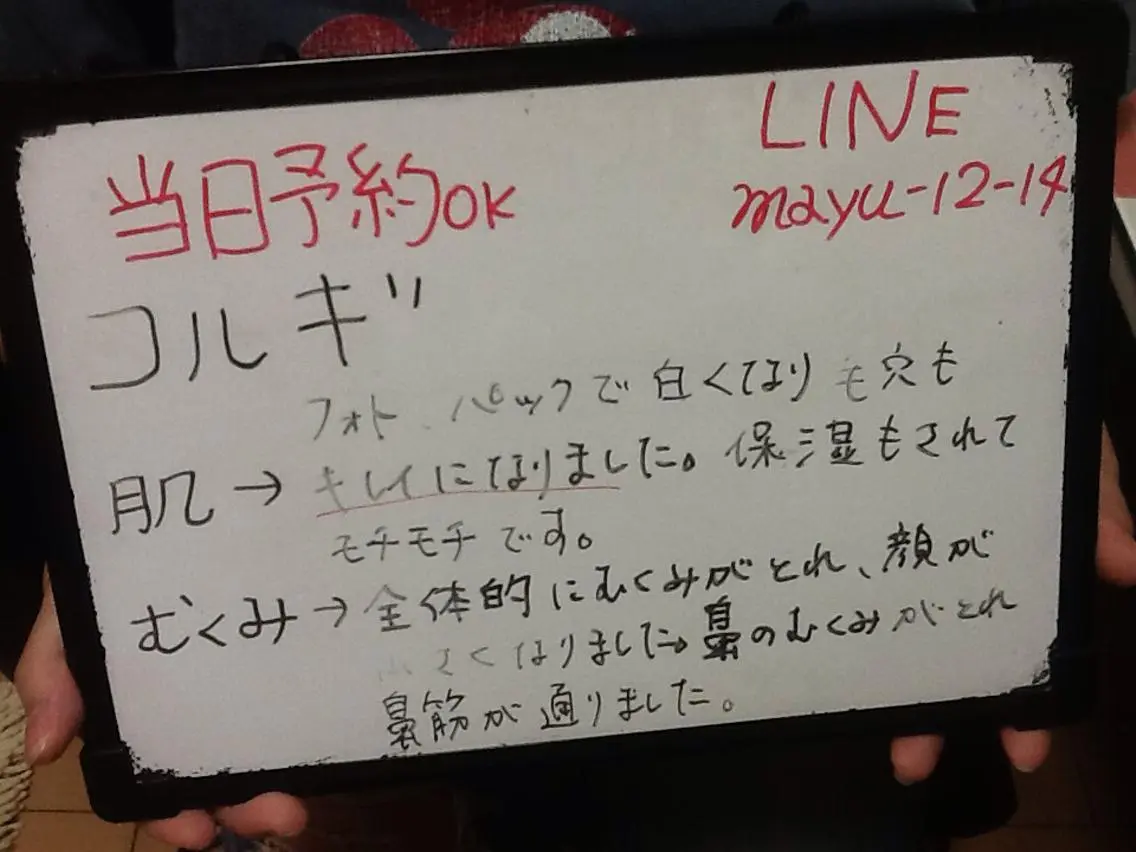 当日予約OK
LINE
mayu-12-14
コルギ
フォト、パックで白くなり毛穴も
肌→キレイになりました。保湿もされて
モチモチです。
むくみ→全体的にむくみがとれ、顔が
小さくなりました→鼻のむくみがとれ
鼻筋が通りました。